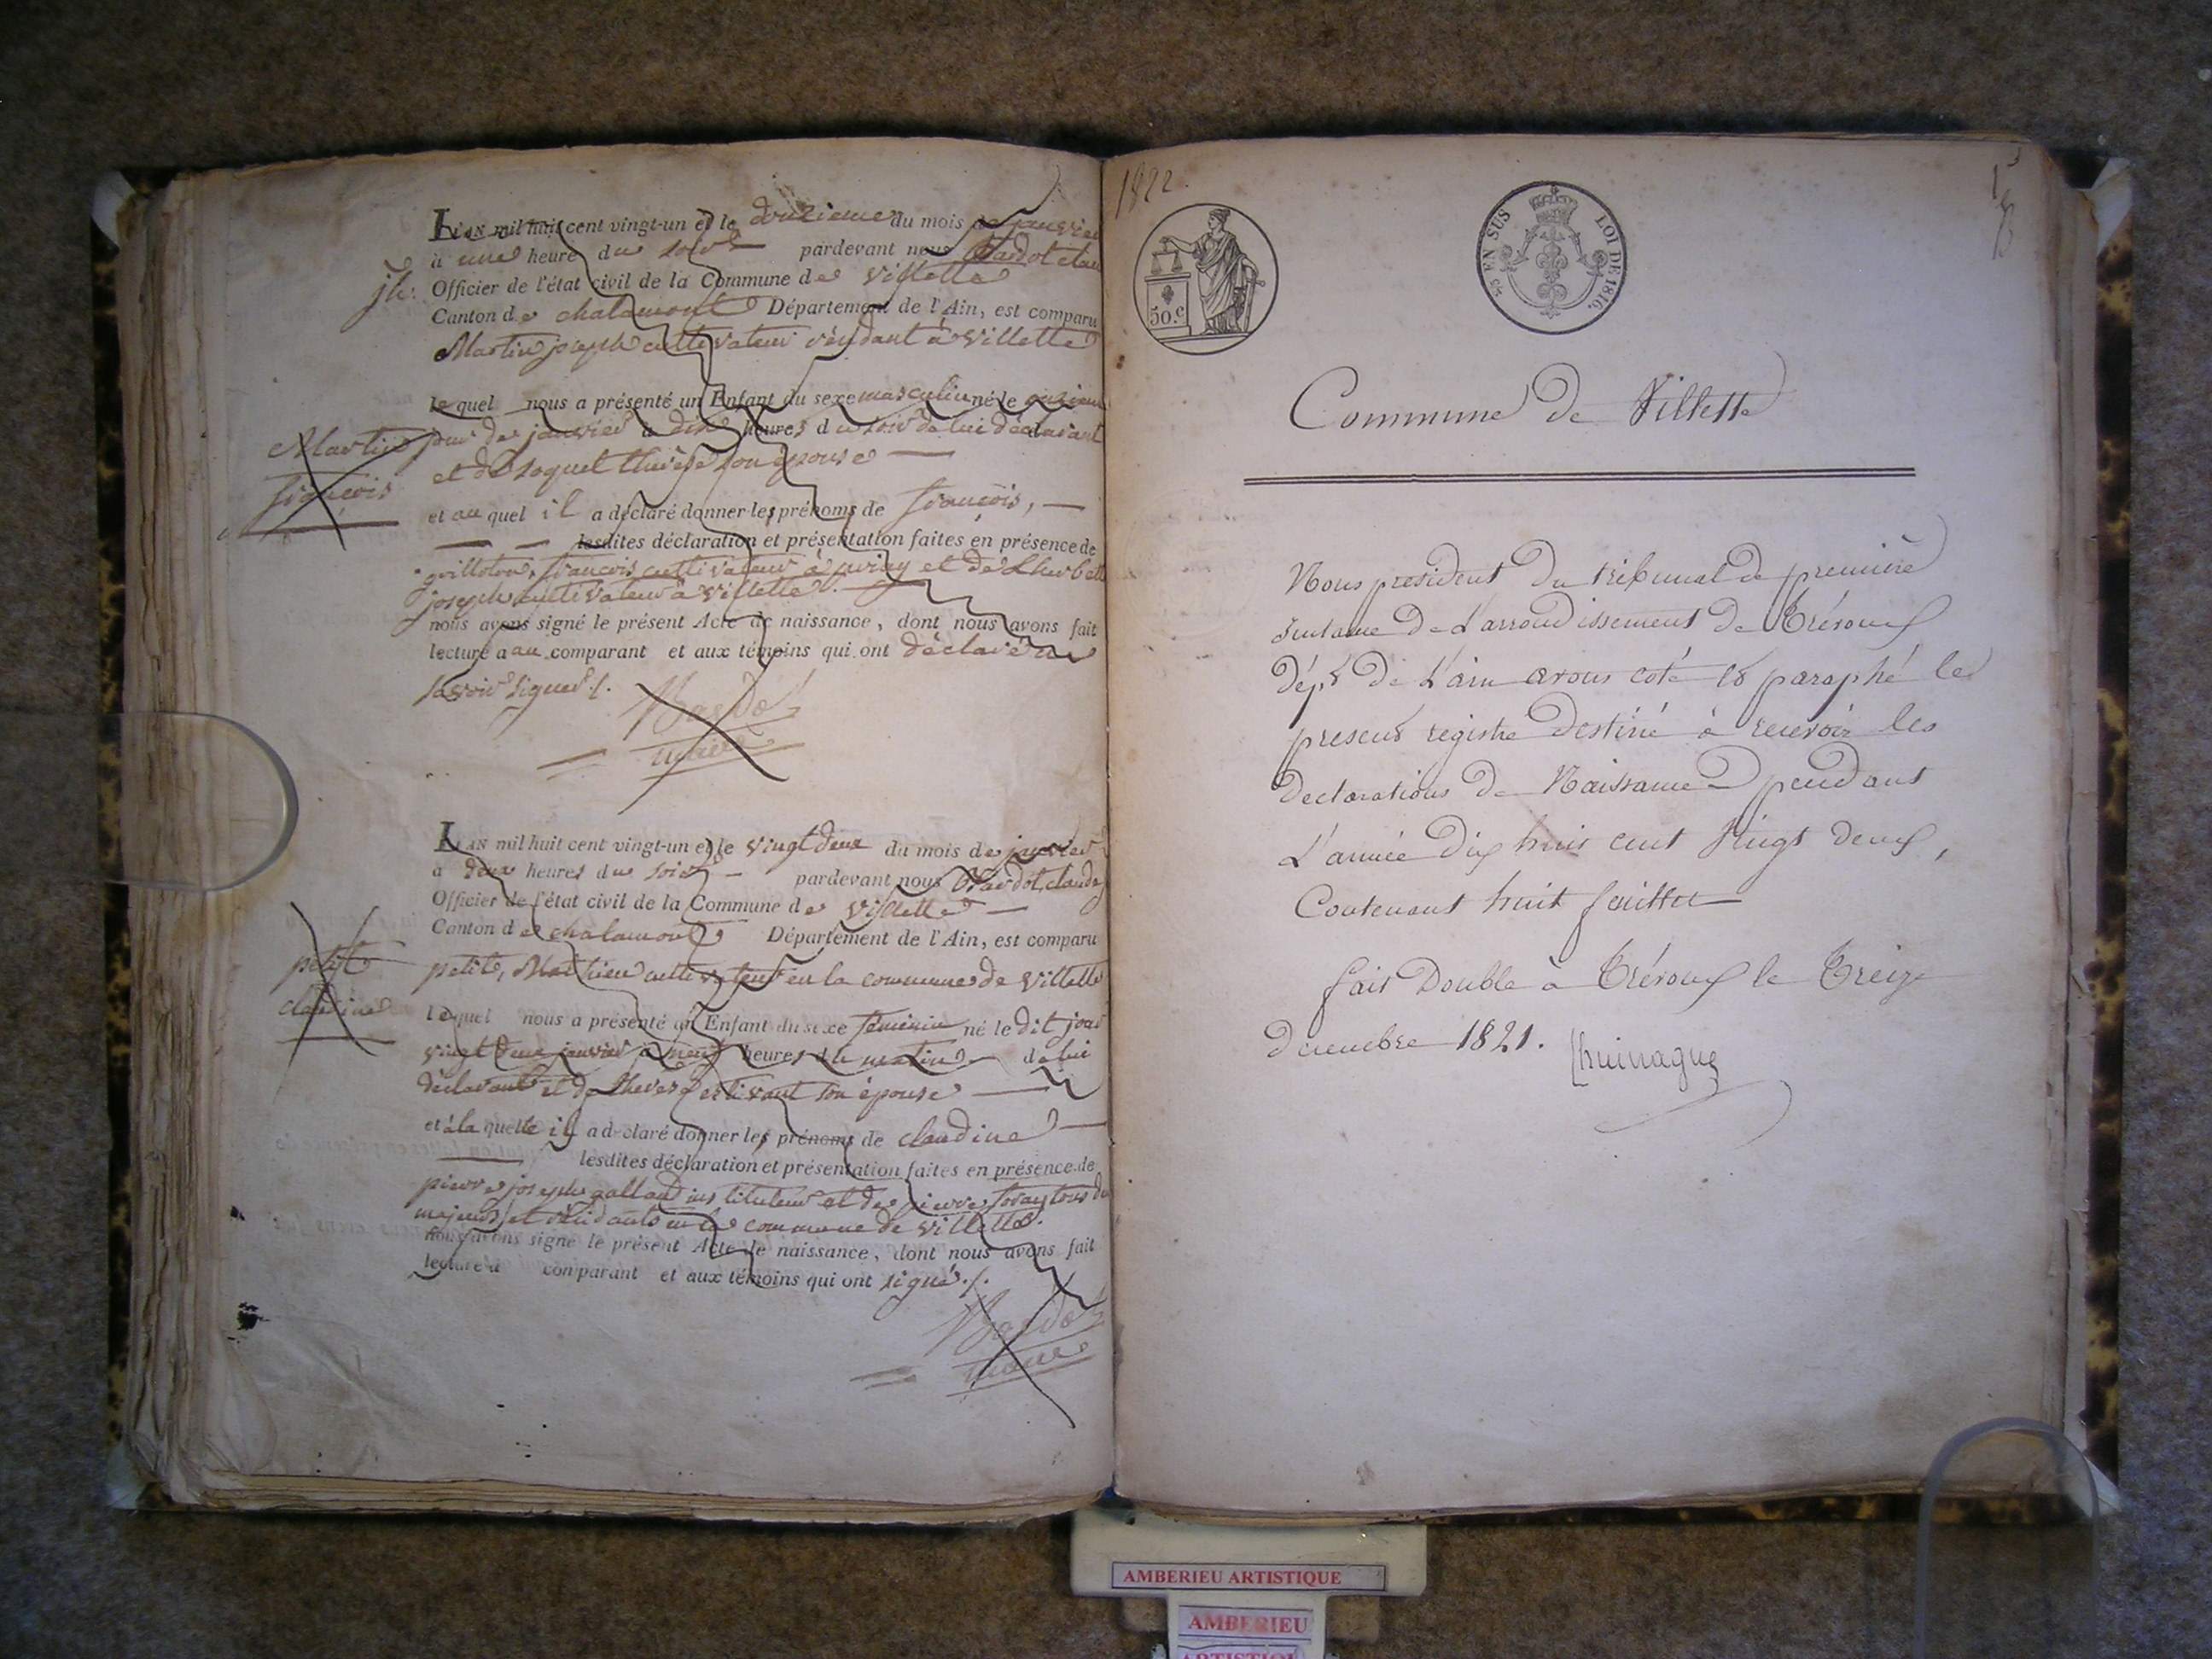 L'AN mil huit cent vingt-un et le douzieme du mois de janvier
à une heure du soir pardevant nous Bardot clau
jh. Officier de l'état civil de la Commune de villette
Canton de chalamont Département de l'Ain, est comparu
Martin joseph cultivateur résidant à villette
le quel nous a présenté un Enfant du sexe masculin né le onzieme
Martin
jour de janvier à dix heures du soir de lui déclarant
françois
et de Soquet thérèse son épouse
et au quel il a déclaré donner les prénoms de françois,
lesdites déclaration et présentation faites en présence de
françois cultivateur à et de
joseph cultivateur à villette.
nous avons signé le présent Acte de naissance, dont nous avons fait
lecture a au comparant et aux témoins qui ont déclaré ne
savoir signer ./.
Bardot
maire
L'AN mil huit cent vingt-un et le vingt deux du mois de janvier
à deux heures du soir pardevant nous Bardot, claude
Officier de l'état civil de la Commune de villette
Canton de chalamont Département de l'Ain, est comparu
petit
petit, Mathieu cultivateur en la commune de villette
claudine
lequel nous a présenté un Enfant du sexe féminin né le dit jour
vingt deux janvier à neuf heures du matin de lui
déclarant et de therese son épouse
et à la quelle il a déclaré donner les prénoms de claudine
lesdites déclaration et présentation faites en présence de
pierre joseph galland instituteur et de pierre tous deux
majeurs et résidants en la commune de villette.
nous avons signé le présent Acte de naissance, dont nous avons fait
lecture a comparant et aux témoins qui ont signé ./.
Bardot
maire
1822.
50.c
25 EN SUS LOI DE 1816.
Commune de Villette
Nous president du tribunal de première
instance de L'arrondissement de Trévoux
dép.t de L'ain avons coté et paraphé le
present registre destiné à recevoir les
declarations de Naissance pendant
L'année dix huit cent vingt deux,
Contenant huit feuillets
fait Double à Trévoux le treize
decembre 1821.
AMBERIEU ARTISTIQUE
AMBERIEU
ARTISTIQUE